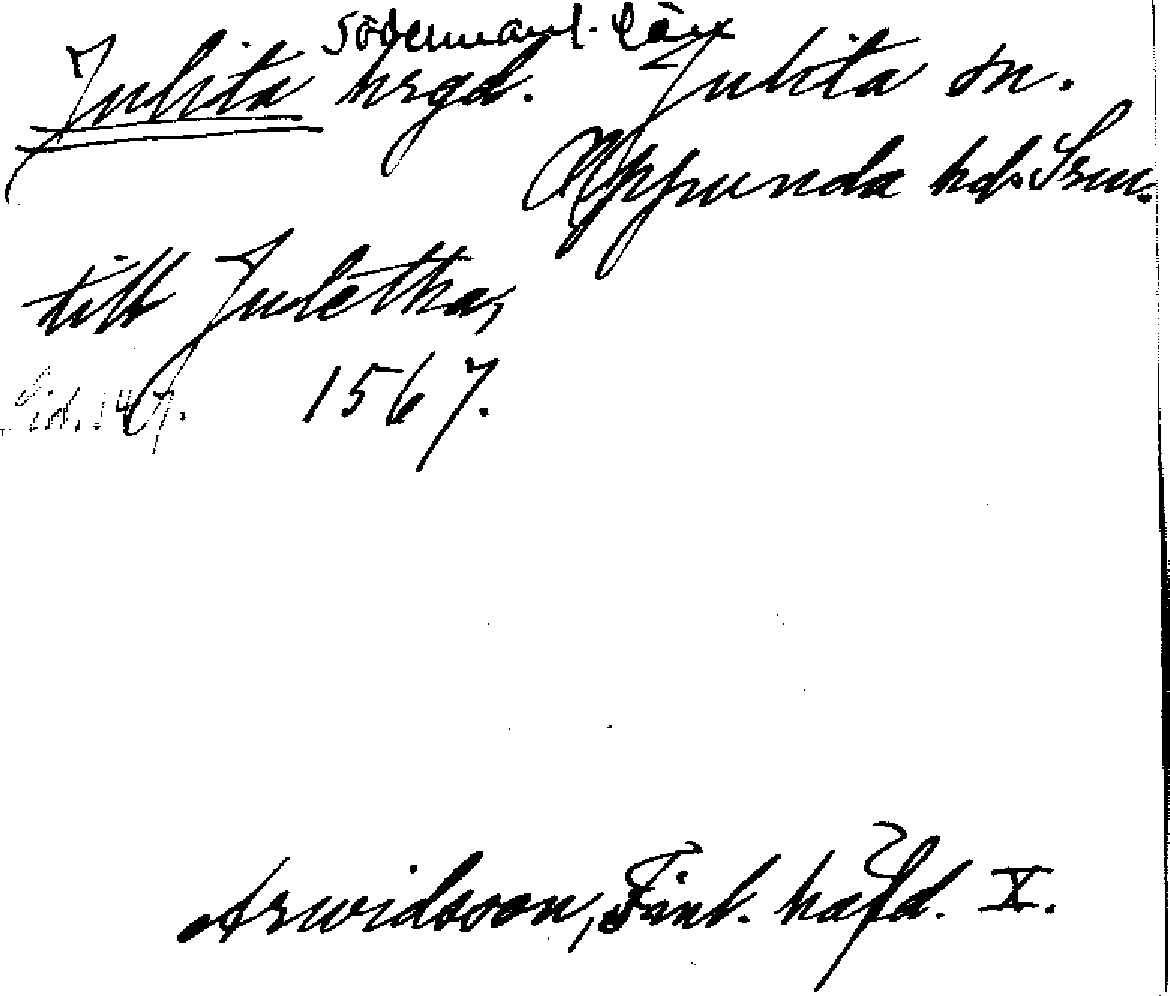 Södermanl. Län
Julita hrgd. Julita sn.
Oppunda hd. Srm.
till Juletha,
Sid. 147. 1567.
Arwidsson, Finl. häfd. X.